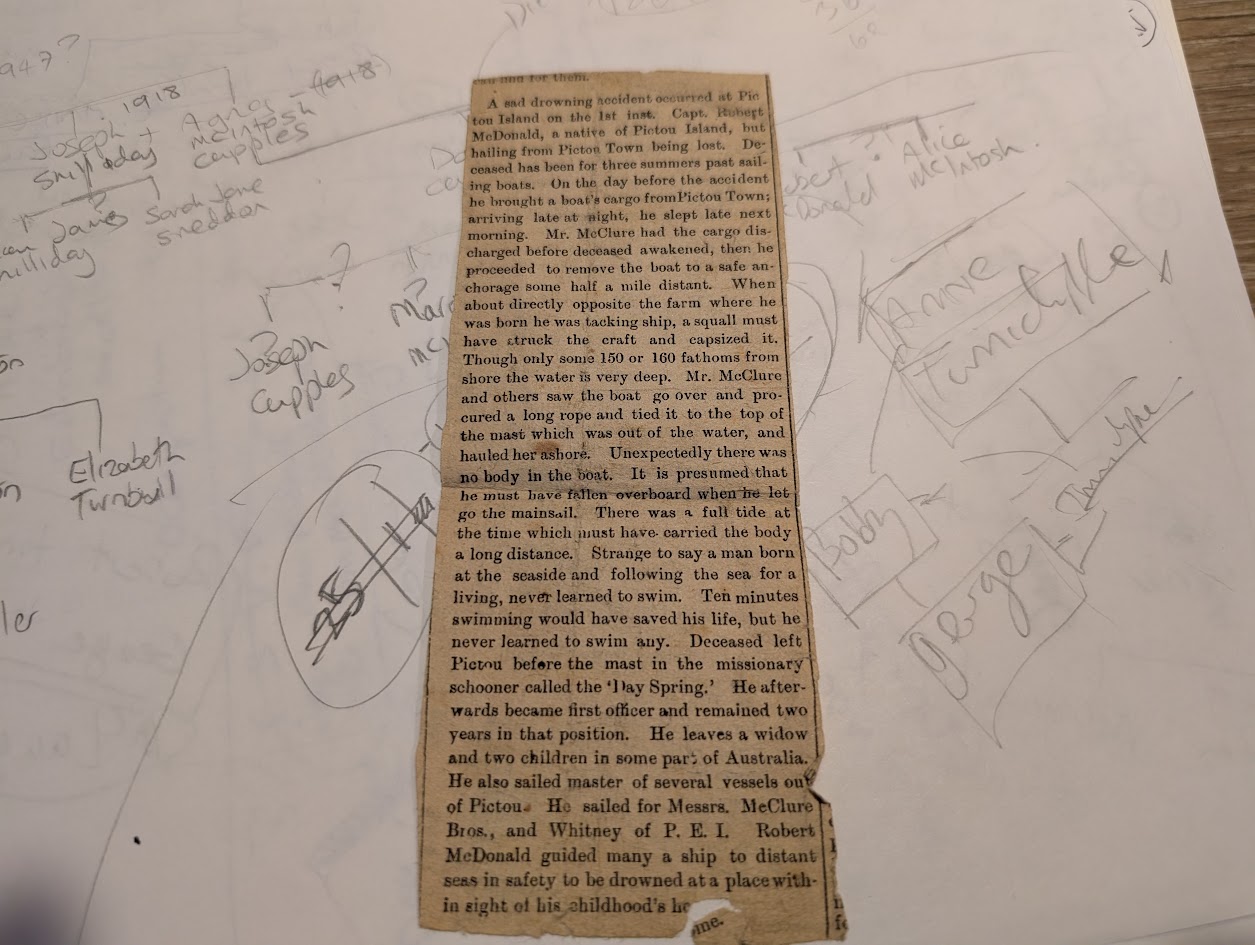 1947?
1918
Joseph + Agnes - (1918)
Smilliday McIntosh
Cupples
James Sarah Jane
Smilliday Sneddon
?
Joseph
Cupples
Elizabeth
Turnbull
ler
Alice
McIntosh.
Annie
Bobby
George
for them.
A sad drowning accident occurred at Pic
tou Island on the 1st inst. Capt. Robert
McDonald, a native of Pictou Island, but
hailing from Pictou Town being lost. De-
ceased has been for three summers past sail-
ing boats. On the day before the accident
he brought a boat's cargo fromPictou Town;
arriving late at night, he slept late next
morning. Mr. McClure had the cargo dis-
charged before deceased awakened, then he
proceeded to remove the boat to a safe an-
chorage some half a mile distant. When
about directly opposite the farm where he
was born he was tacking ship, a squall must
have struck the craft and capsized it.
Though only some 150 or 160 fathoms from
shore the water is very deep. Mr. McClure
and others saw the boat go over and pro-
cured a long rope and tied it to the top of
the mast which was out of the water, and
hauled her ashore. Unexpectedly there was
no body in the boat. It is presumed that
he must have fallen overboard when he let
go the mainsail. There was a full tide at
the time which must have carried the body
a long distance. Strange to say a man born
at the seaside and following the sea for a
living, never learned to swim. Ten minutes
swimming would have saved his life, but he
never learned to swim any. Deceased left
Pictou before the mast in the missionary
schooner called the 'Day Spring.' He after-
wards became first officer and remained two
years in that position. He leaves a widow
and two children in some part of Australia.
He also sailed master of several vessels out
of Pictou. He sailed for Messrs. McClure
Bros., and Whitney of P. E. I. Robert
McDonald guided many a ship to distant
seas in safety to be drowned at a place with-
in sight of his childhood's home.